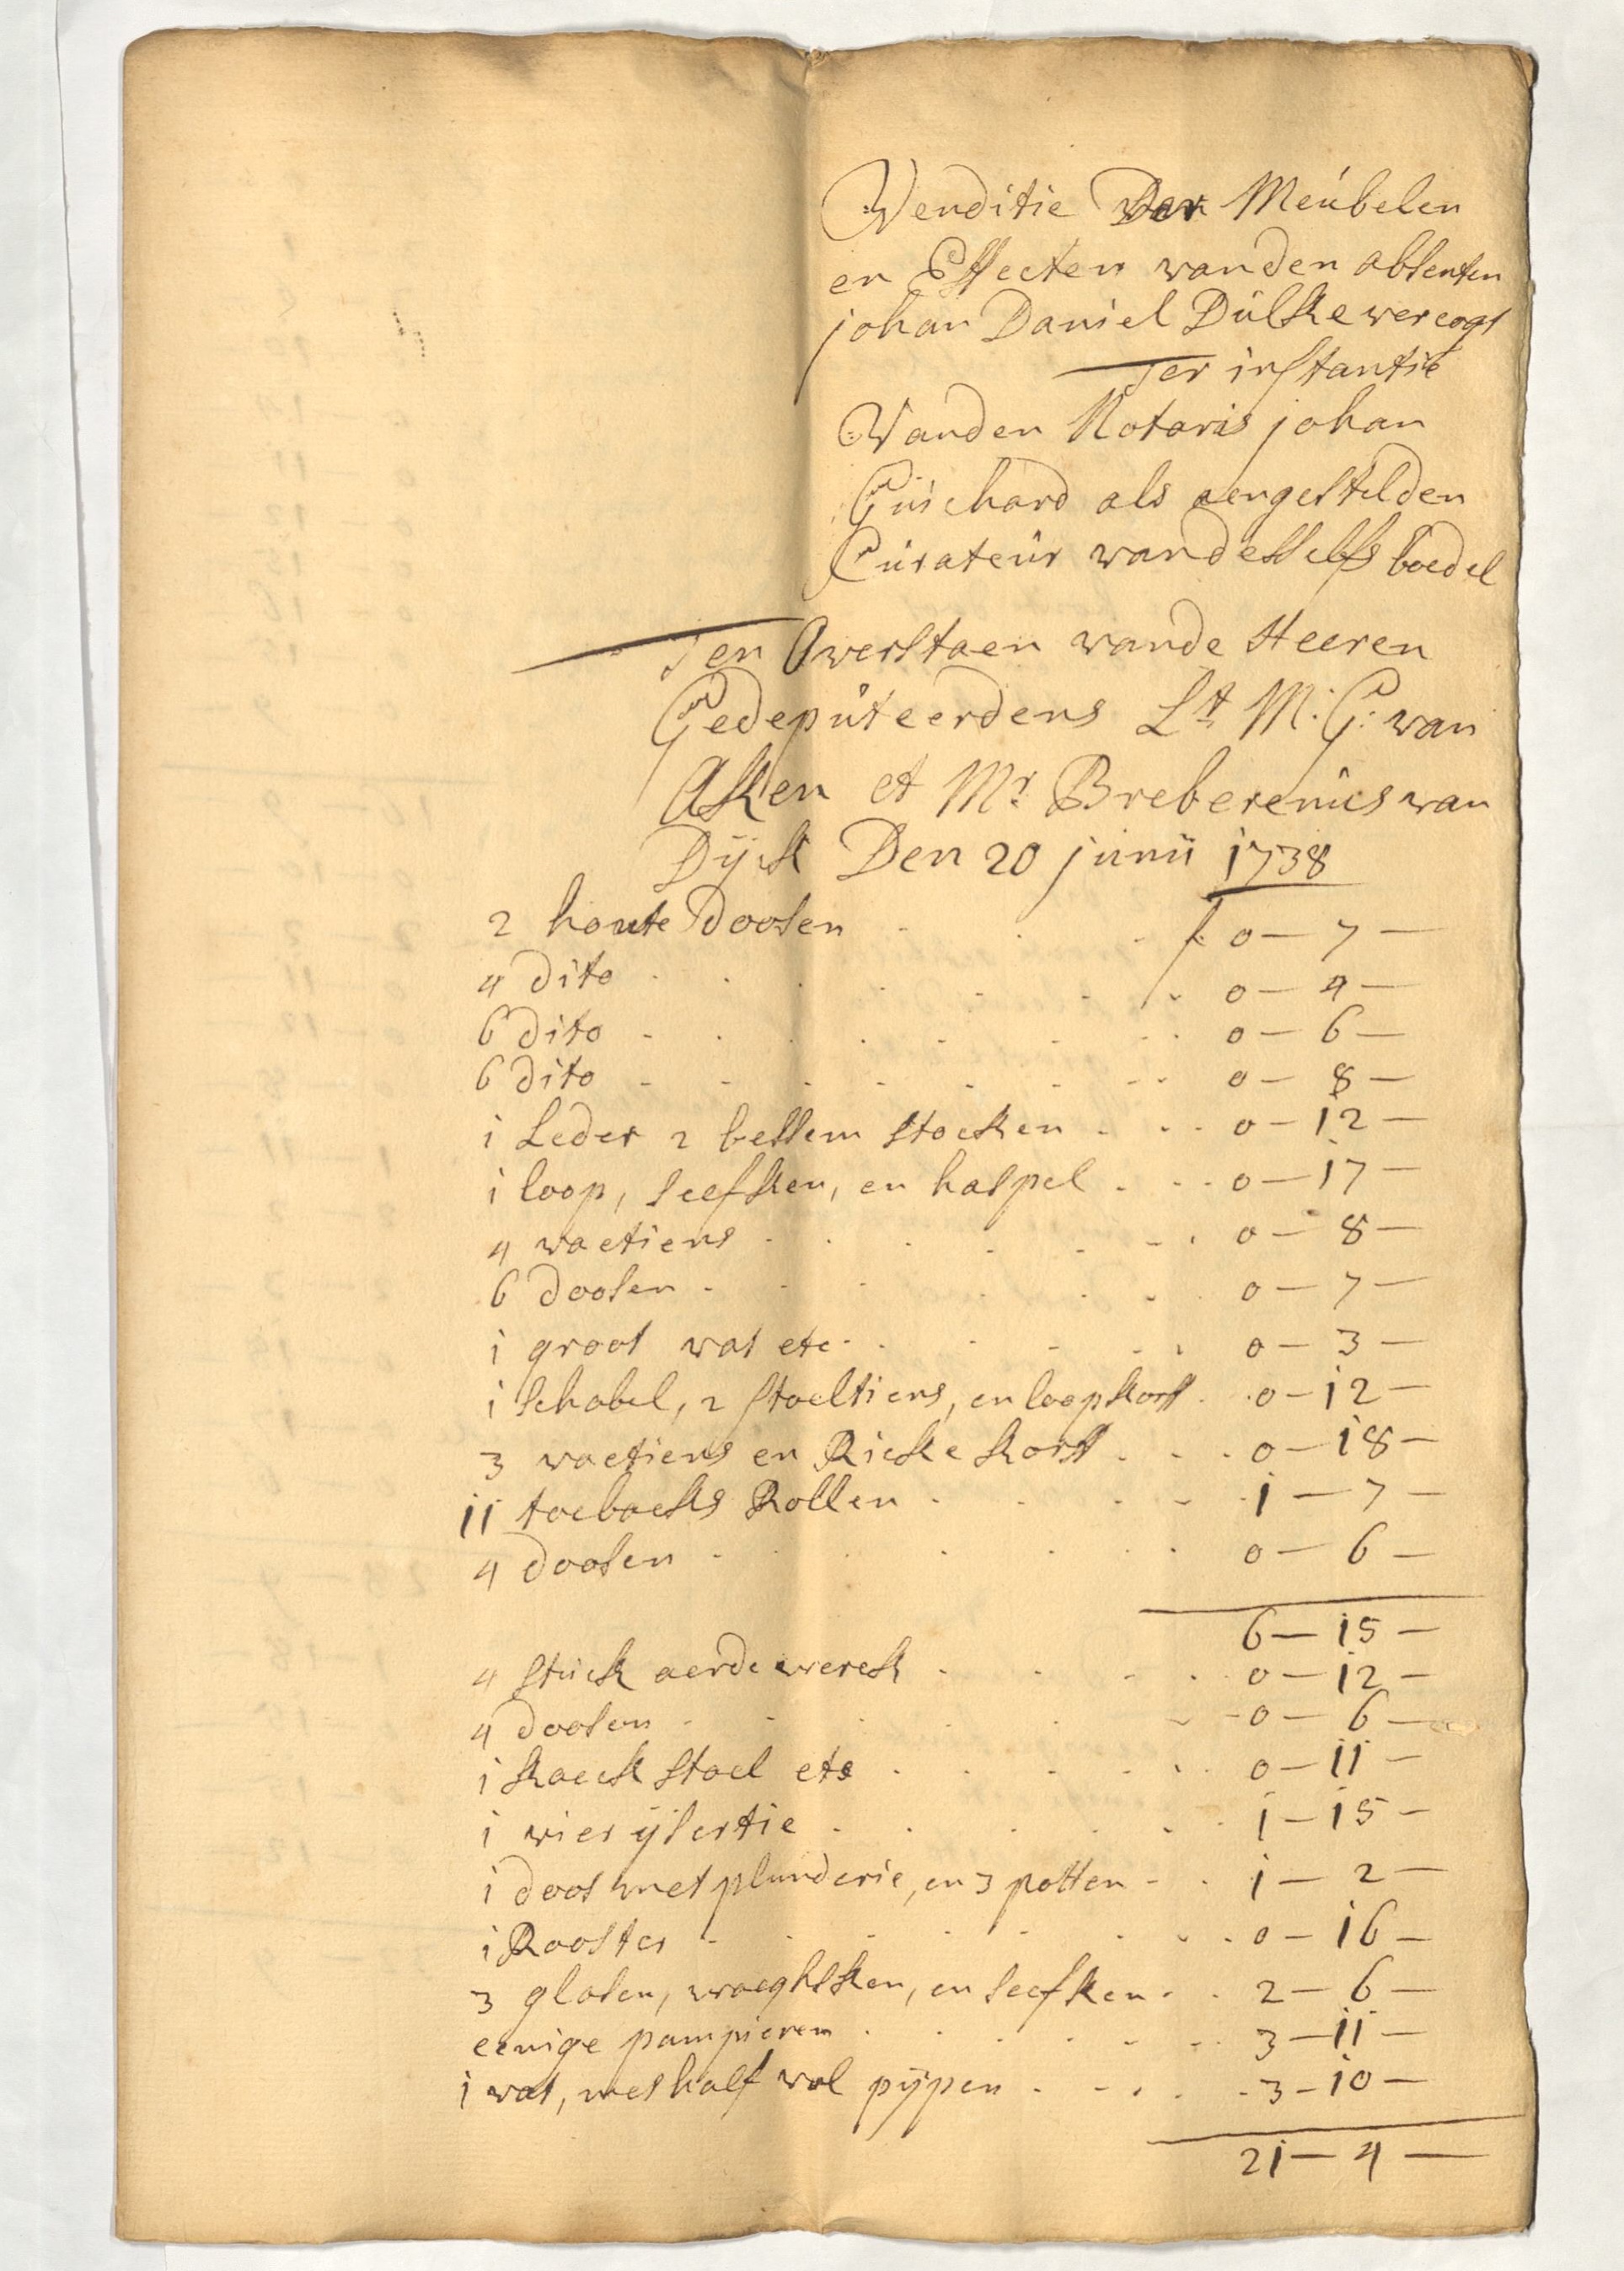 Venditie Der Meubelen
en Effecten vanden absenten
johan Daniel Dulke vercogt
Ter instantie
Vanden Notaris johan
Guichard als aengestelden
Curateur van desselfs boedel
Ten Overstaen vande Heeren
Gedeputeerdens Lt M: G: van
Aken et Mr Breberenus van
Dijck Den 20 junii 1738
2 houte Doosen f: 0 — 7 —
4 dito 0 — 4 —
6 dito 0 — 6 —
6 dito 0 — 8 —
1 Leder 2 bessem stocken 0 — 12 —
1 loop, seefken, en haspel 0 — 17 —
4 vaetiens 0 — 8 —
6 doosen 0 — 7 —
1 groot vat etc 0 — 3 —
1 schabel, 2 stoeltiens, en loopkorf 0 — 12 —
3 vaetiens en Ricke korf 0 — 18 —
11 toebacks Rollen 1 — 7 —
4 doosen 0 — 6 —
6 — 15 —
4 stuck aerde werck 0 — 12 —
4 doosen 0 — 6 —
1 kaeck stoel etc 0 — 11 —
1 vier ijsertie 1 — 15 —
1 doos met plunderie, en 3 potten 1 — 2 —
1 Rooster 0 — 16 —
3 glasen, waeghsken, en seefken 2 — 6 —
eenige pampieren 3 — 11 —
1 vat, met half vol pijpen 3 — 10 —
21 — 4 —